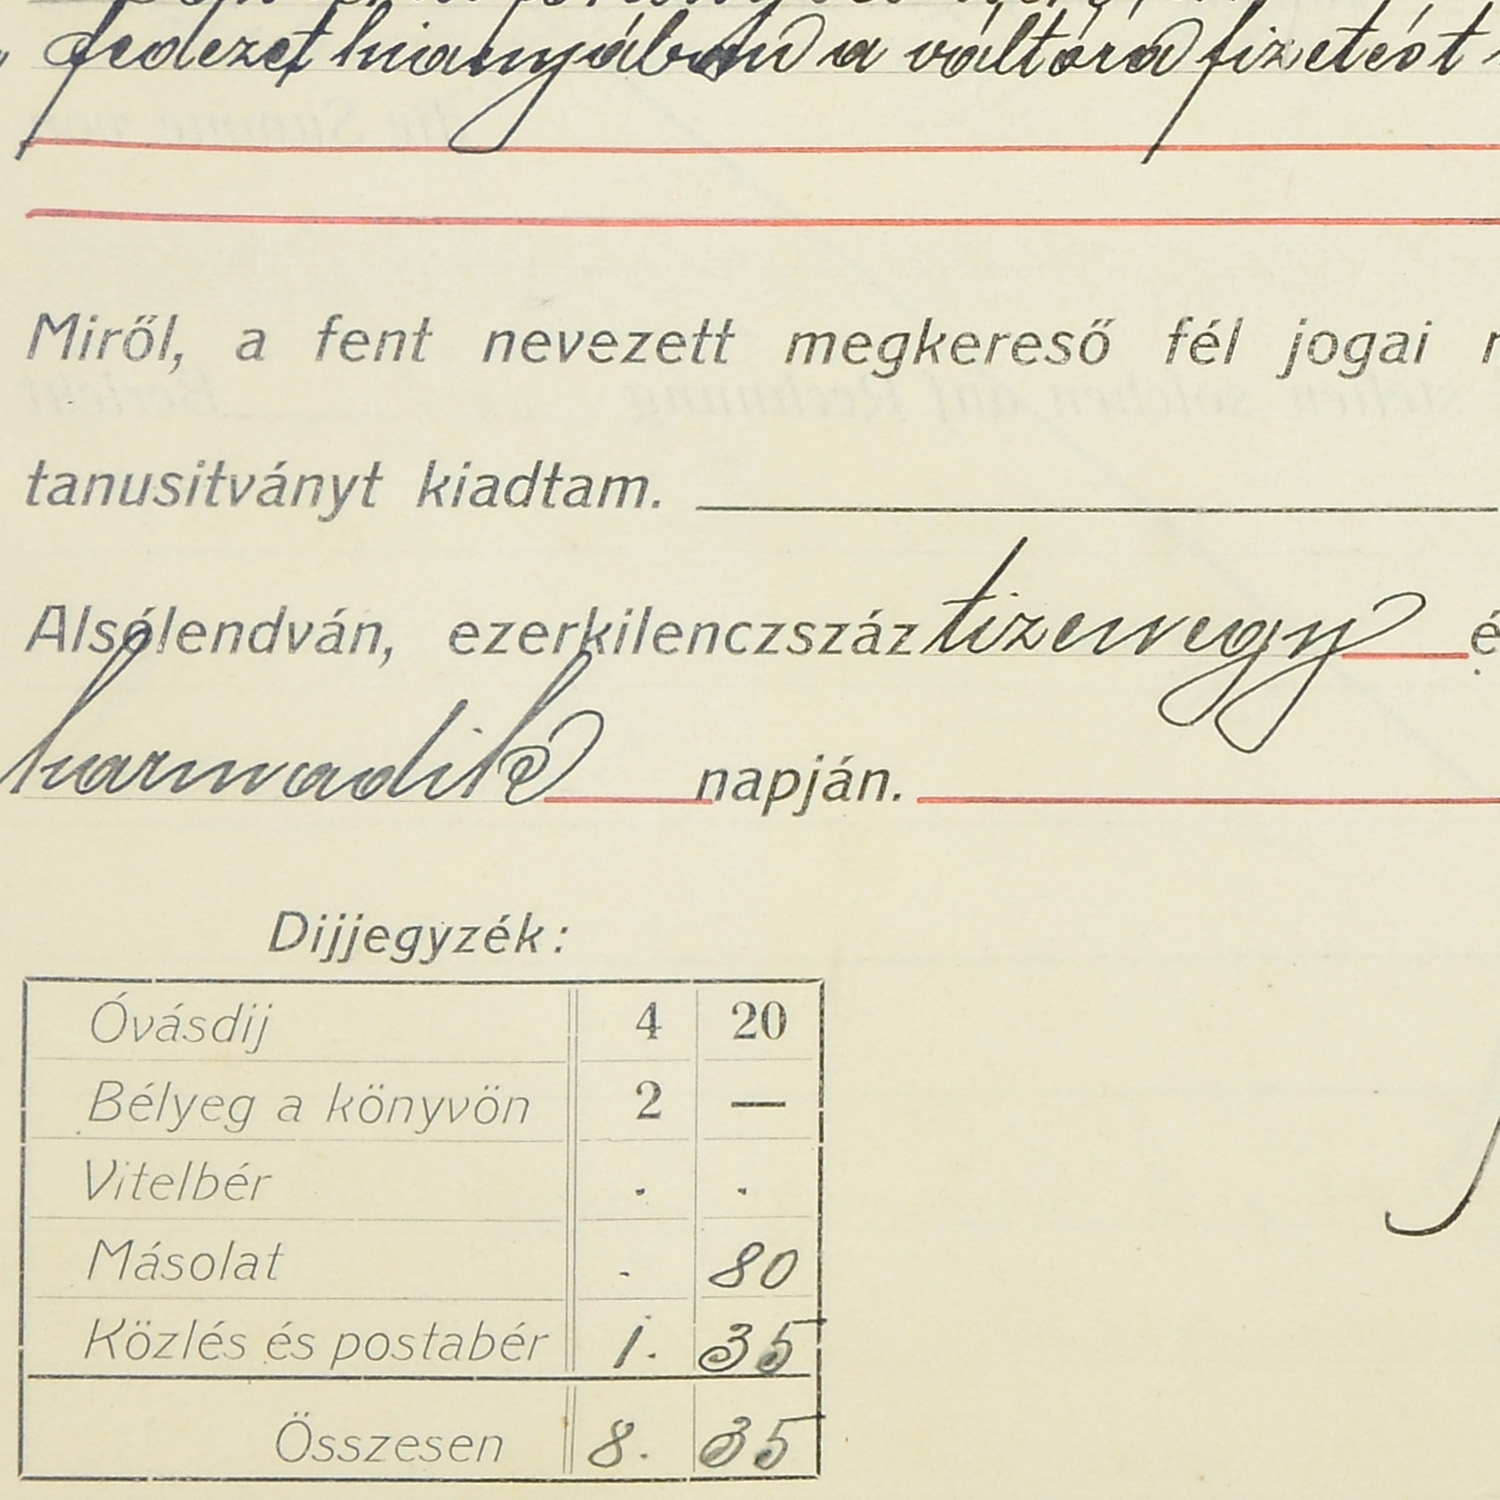 fedezet hiányában a váltóra fizetést
Miről, a fent nevezett megkereső fél jogai
tanusitványt kiadtam.
Alsólendván, ezerkilenczszáz tizenegy é
harmadik napján.
Dijjegyzék:
Óvásdij 4 20
Bélyeg a könyvön 2 —
Vitelbér . .
Másolat . 80
Közlés és postabér 1. 35
Összesen 8. 35